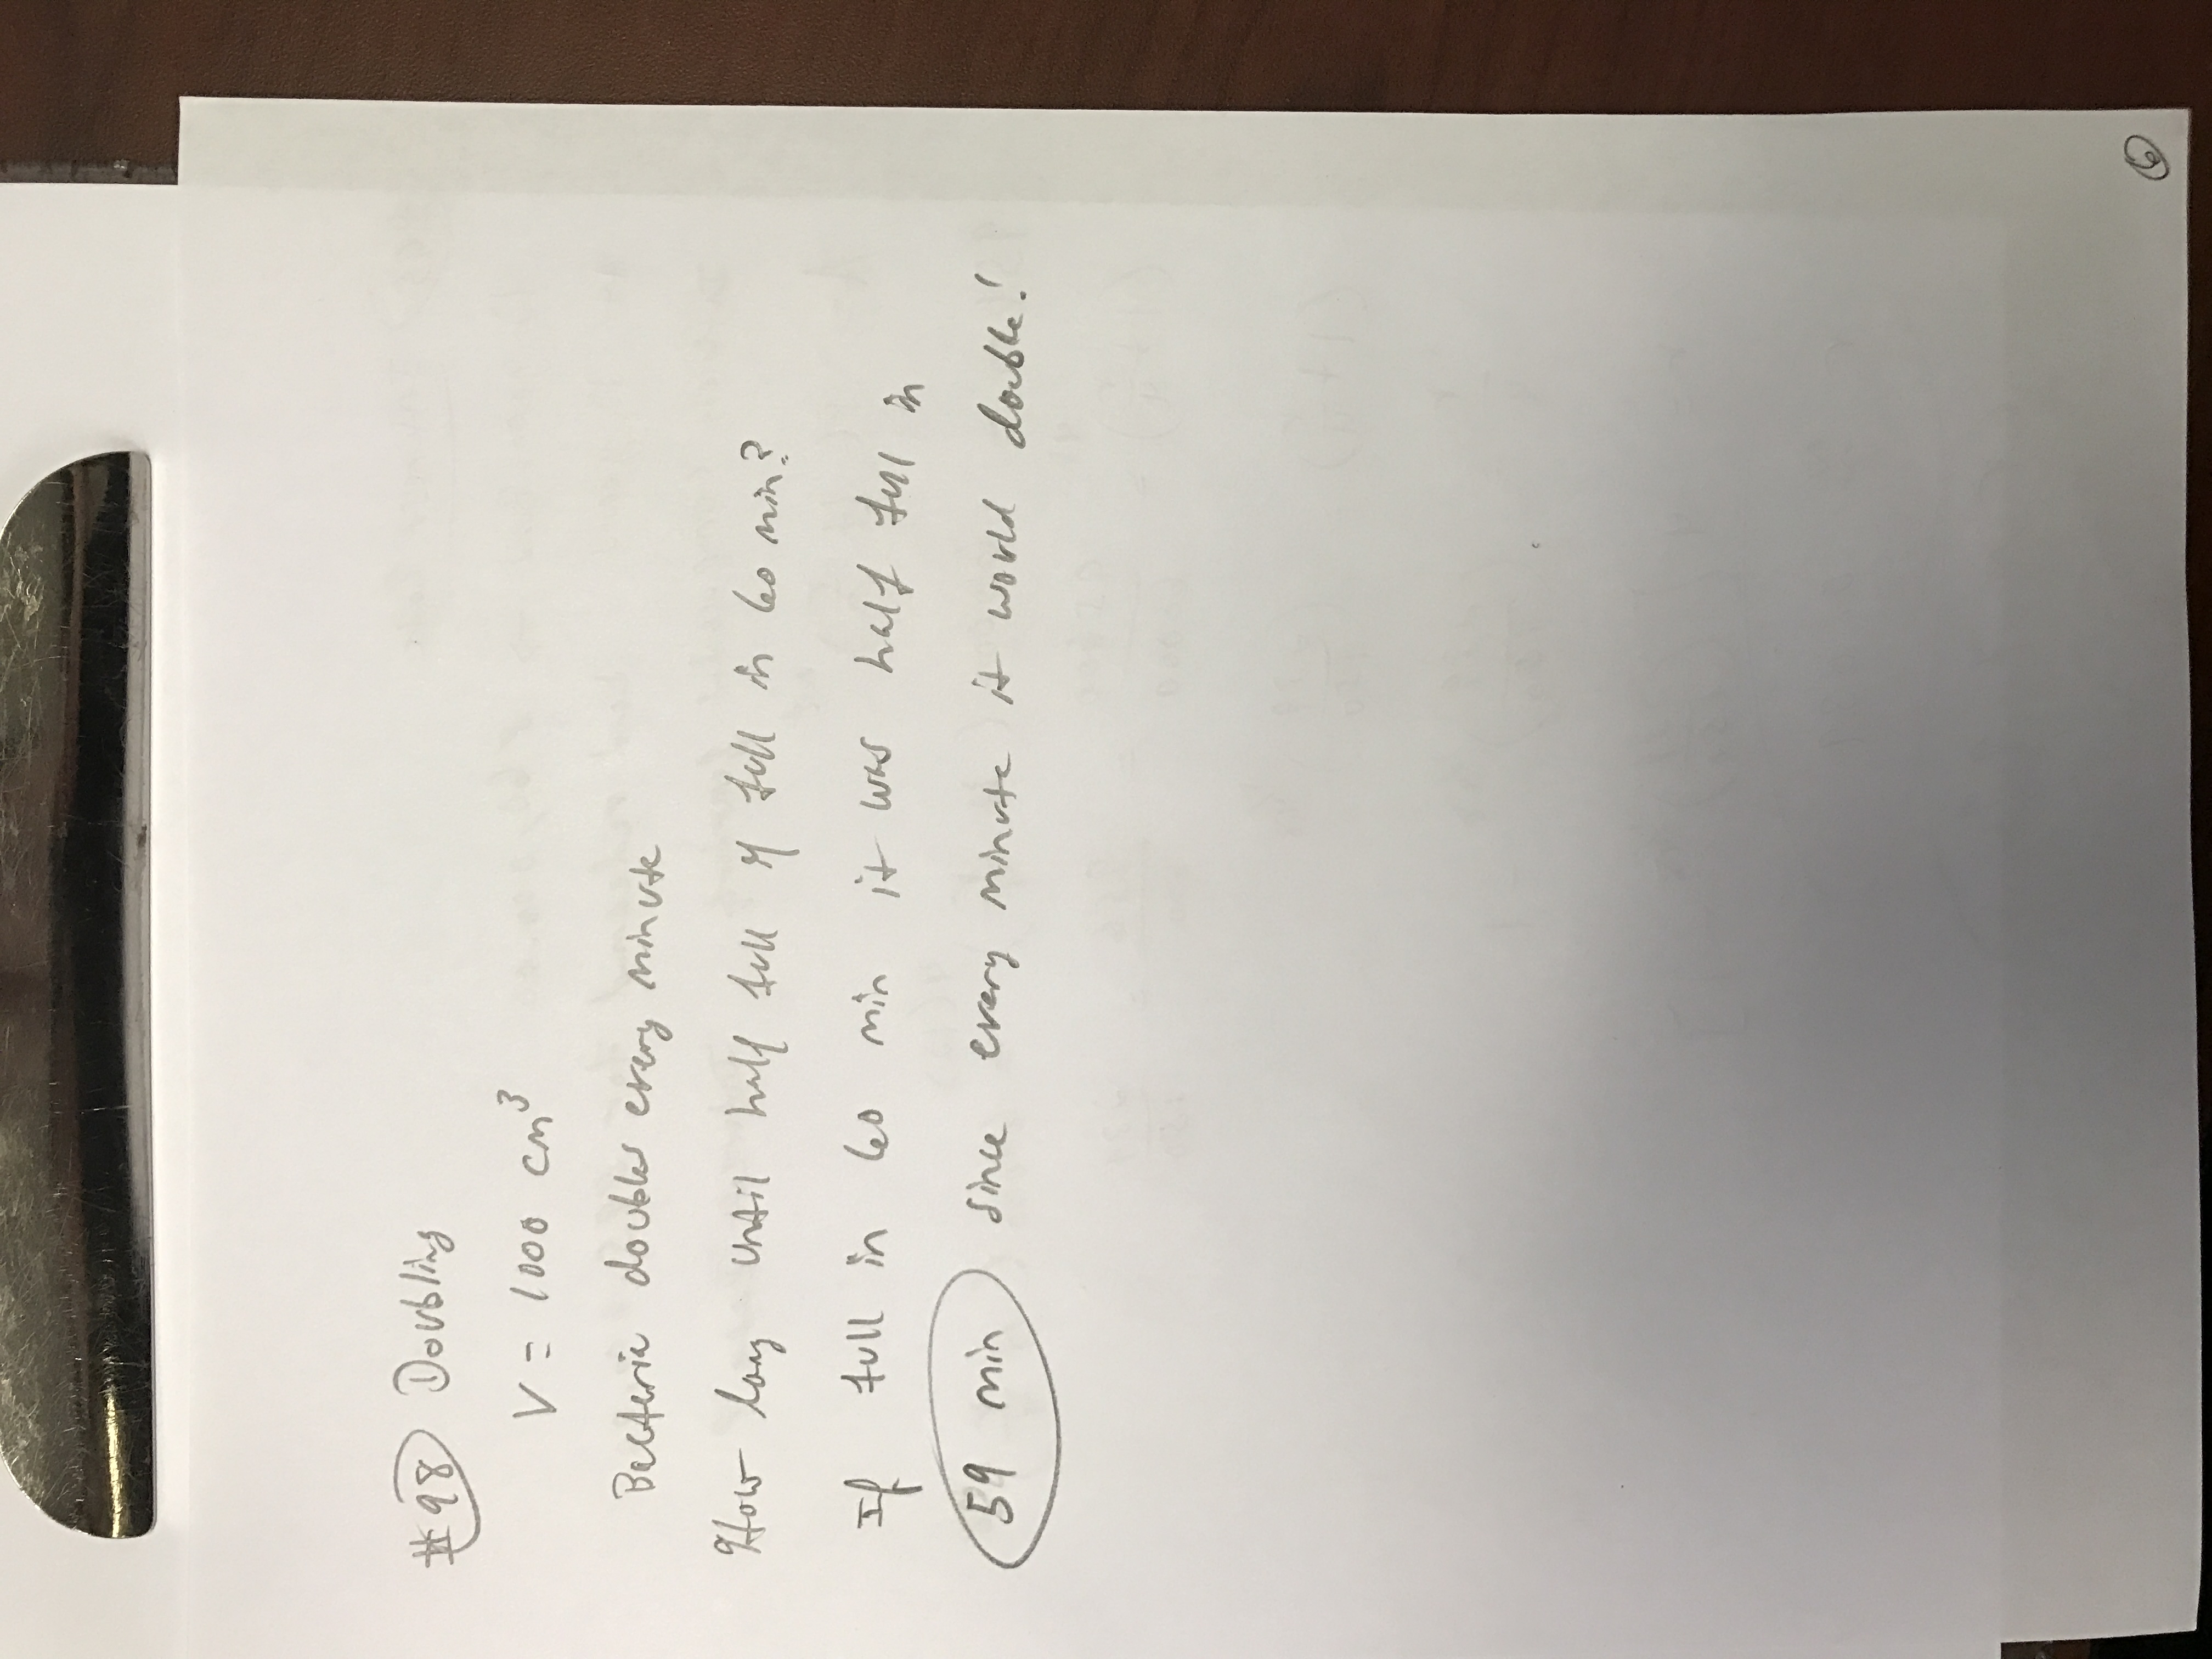 #98 Doubling
V = 1000 cm³
Bacteria doubles every minute
How long until half full if full in 60 min?
If full in 60 min it was half full in
59 min since every minute it would double!
6